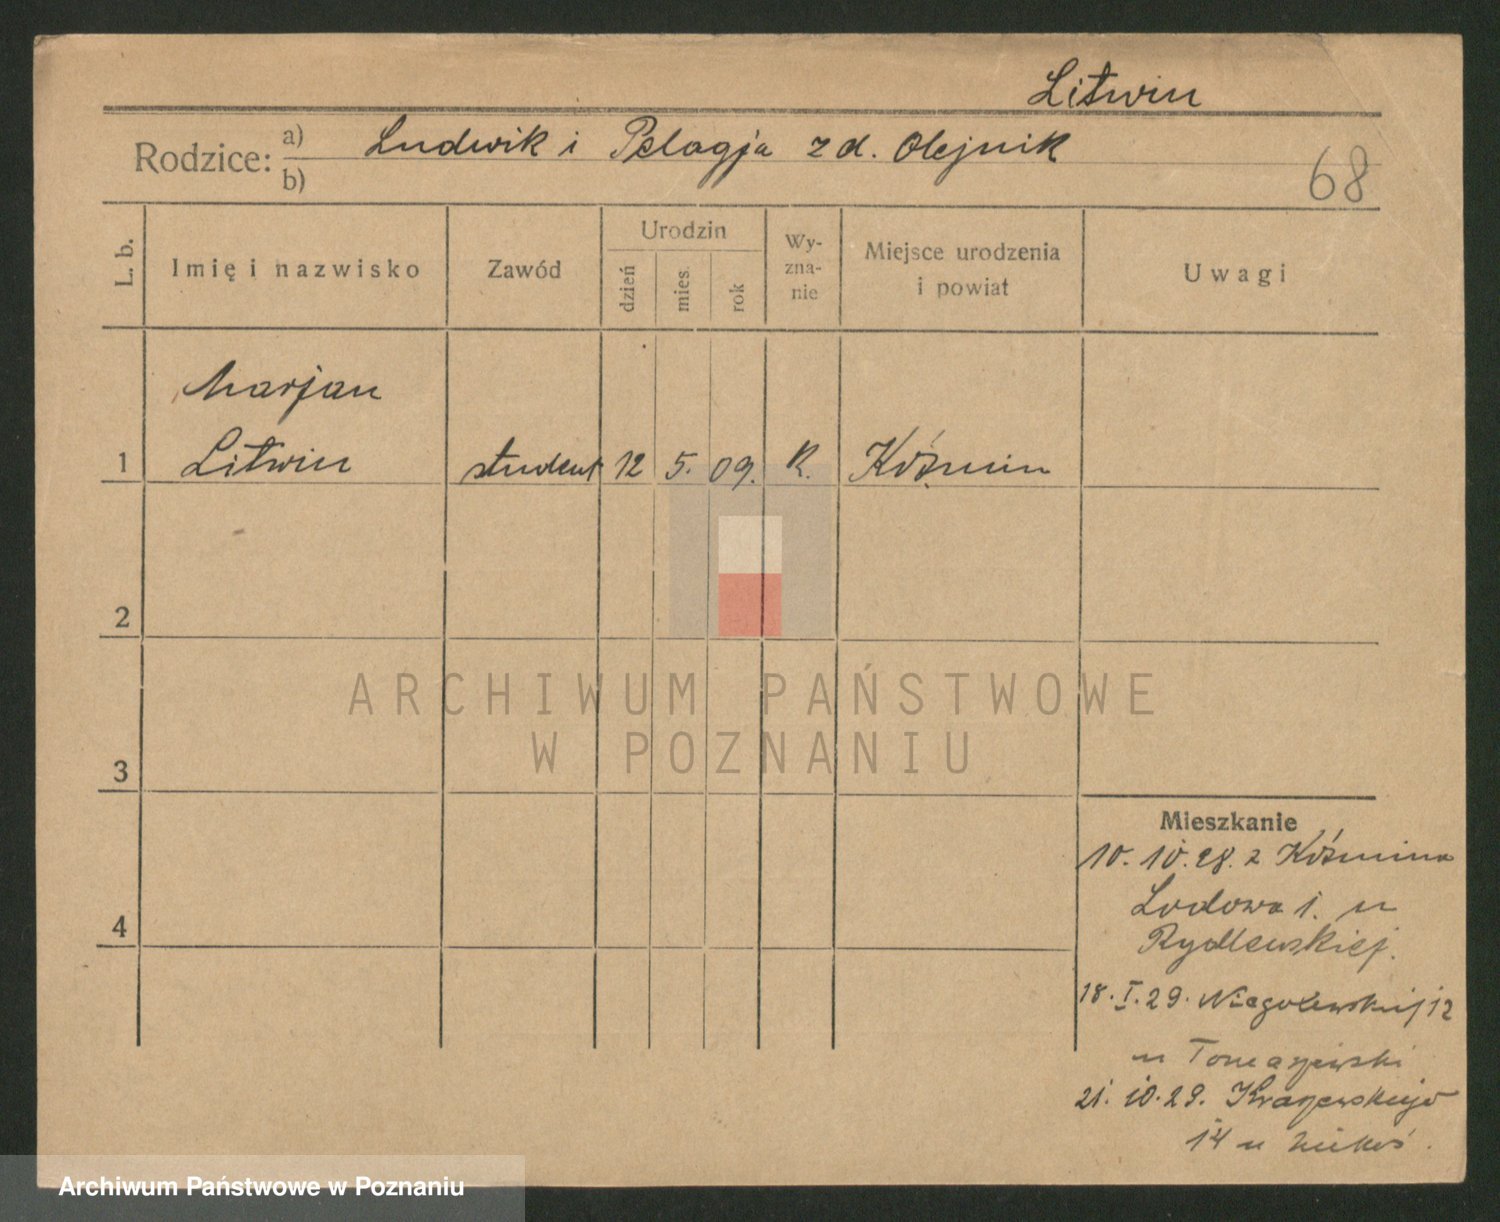 Litwin
Rodzice: a) Ludwik i Pelagja z d. Olejnik
b)
68
L. b.
Imię i nazwisko
Zawód
Urodzin
dzień
mies.
rok
Wy-
zna-
nie
Miejsce urodzenia
i powiat
Uwagi
Marjan
1 Litwin student 12 5. 09. R. Koźmin
2
3
4
ARCHIWUM PAŃSTWOWE
W POZNANIU
Mieszkanie
10.10.28. z Koźmina
Lodowa 1. u
Rydlewskiej.
18.I.29. Niegolewskij 12
u Tomaszewski
21.10.29. Kraszewskiego
14 u
Archiwum Państwowe w Poznaniu